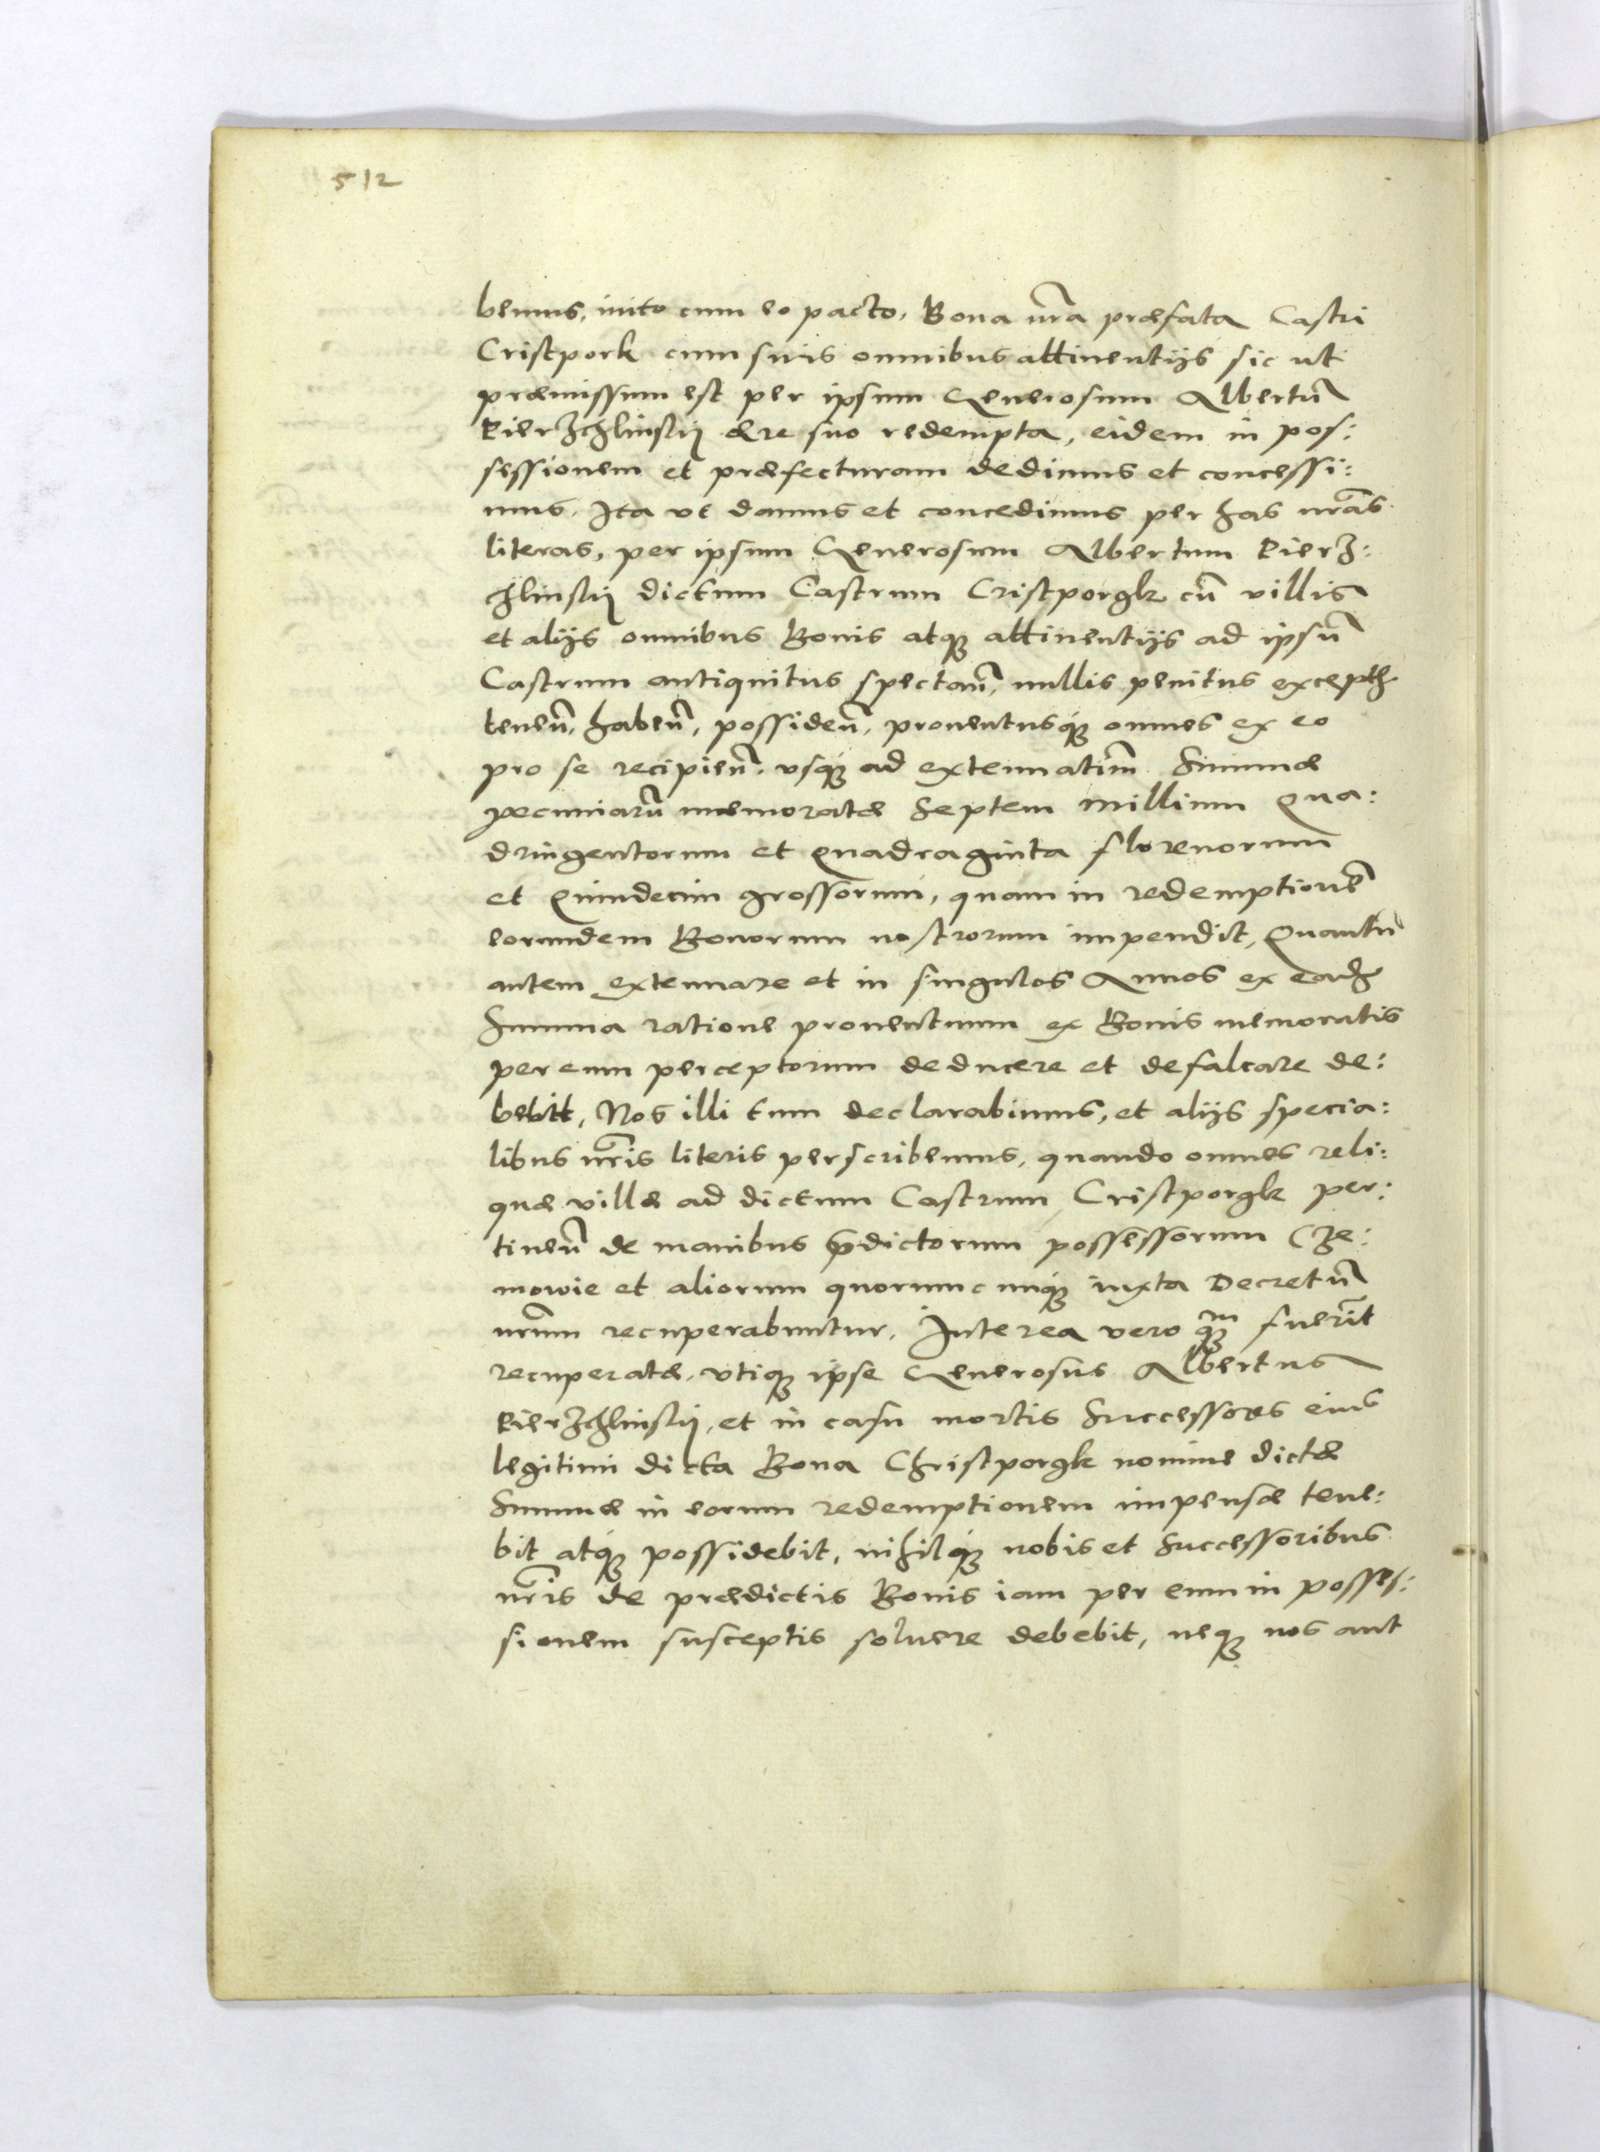 512
bemus, inito cum eo pacto, Bona nr̃a præfata Castri
Cristpork cum suis omnibus attinentijs sic ut
præmissum est per ipsum Generosum Albertũ
Pierzchlinskij ære suo redempta, eidem in pos:
sessionem et præfecturam dedimus et concessi:
mus. Ita vt damus et concedimus per has nrãs
literas, per ipsum Generosum Albertum Pierz:
chlinskij dictum Castrum Cristporgk cũ villis
et alijs omnibus Bonis atq; attinentijs ad ipsũ
Castrum antiquitus spectan̄, nullis penitus except.
tenen̄, haben̄, possiden̄, prouentusq; omnes ex eo
pro se recipien̄, vsq; ad extenuatiõm Summæ
pecuniarũ memoratæ Septem Millium Qua:
dringentorum et Quadraginta florenorum
et Quindecim grossorum, quam in redemptionẽ
eorundem Bonorum nostrorum impendit, Quantũ
autem extenuare et in singulos Annos ex ead
Summa ratione prouentuum ex Bonis memoratis
per eum perceptorum deducere et defalcare de:
bebit, Nos illi tum declarabimus, et alijs specia:
libus nr̃is literis perscribemus, quando omnes reli:
quæ villæ ad dictum Castrum Cristporgk per:
tinen̄ de manibus p̃dictorum possessorum Cze:
mowie et aliorum quorumcunq; iuxta Decretũ
nr̃um recuperabuntur. Interea vero q; m fuerĩt
recuperatæ, vtiq; ipse Generosus Albertus
Pierzchlinskij, et in casu mortis Successores eius
legitimi dicta Bona Christporgk nomine dictæ
Summæ in eorum redemptionem impensæ tene:
bit atq; possidebit, nihilq; nobis et Successoribus
nr̃is de prædictis Bonis iam per eum in posses:
sionem susceptis soluere debebit, neq; nos aut